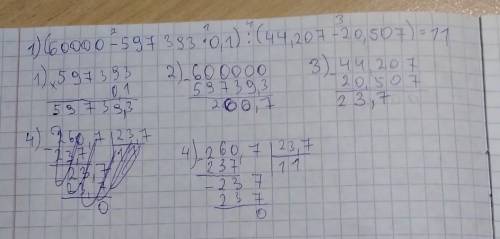 1)(60000-597393·0,1):(44,207-20,507)=11
1 2 3 4
1) x 597393
0 1
59739,3
2) - 600000
59739,3
260,7
3) - 44,207
20,507
23,7
4) - 260,7 23,7
237
23,7
23,7
0
4) - 260,7 23,7
237 11
- 237
237
0